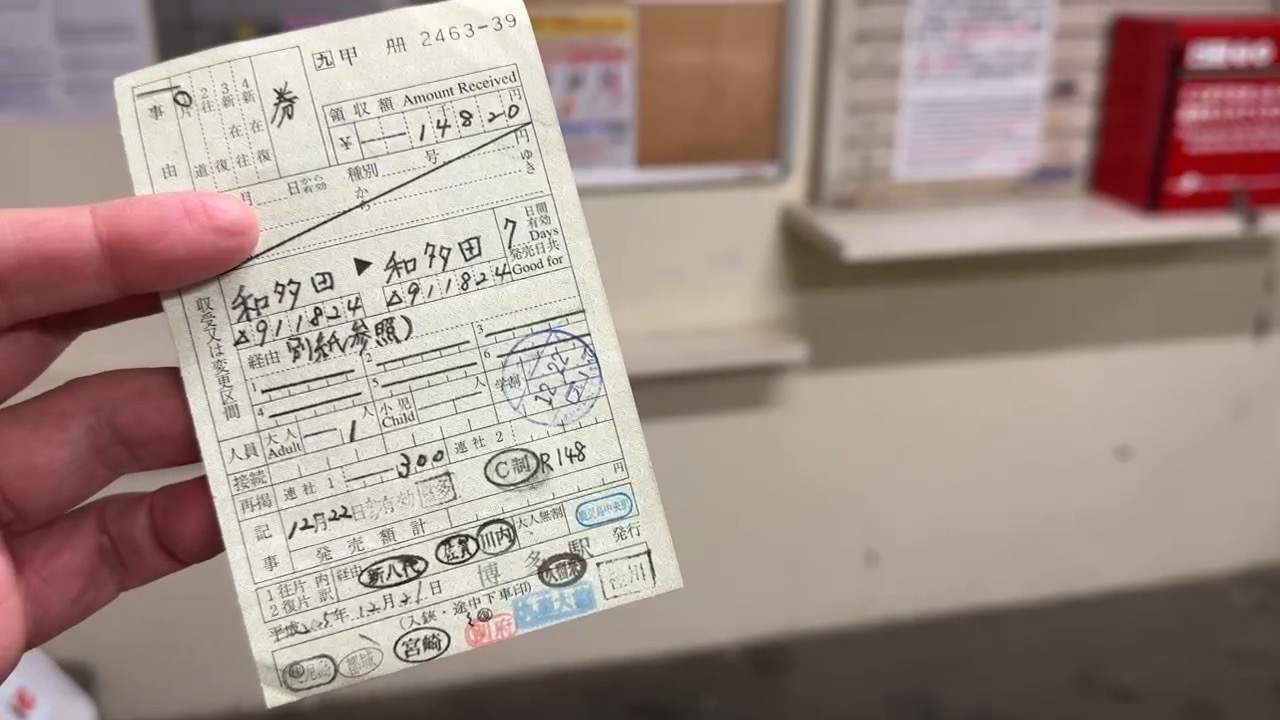 ㊈甲 冊 2463-39
事由
片道
2 往復
3 新在往
4 新在復
券
領収額 Amount Received
¥ 14820 円
月 日から有効 種別 号 円
から ゆき
収受又は変更区間
和多田 ▶ 和多田 7 日間有効 Days
△911824 △911824 発売日共 Good for
経由 別紙参照)
1 2 3
4 5 6
人員 大人 Adult 1 人 小児 Child 人 学割
接続 連社 1 300 連社 2
再掲 C制 R148
記事 12月22日から有効
発売額計 円
1 往片 内訳 経由 新八代 佐賀 川内 大人無割 鹿児島中央駅
2 復片 博多駅 発行
平成 年 12月21日 久留米
(入鋏・途中下車印)
都城 宮崎 別府